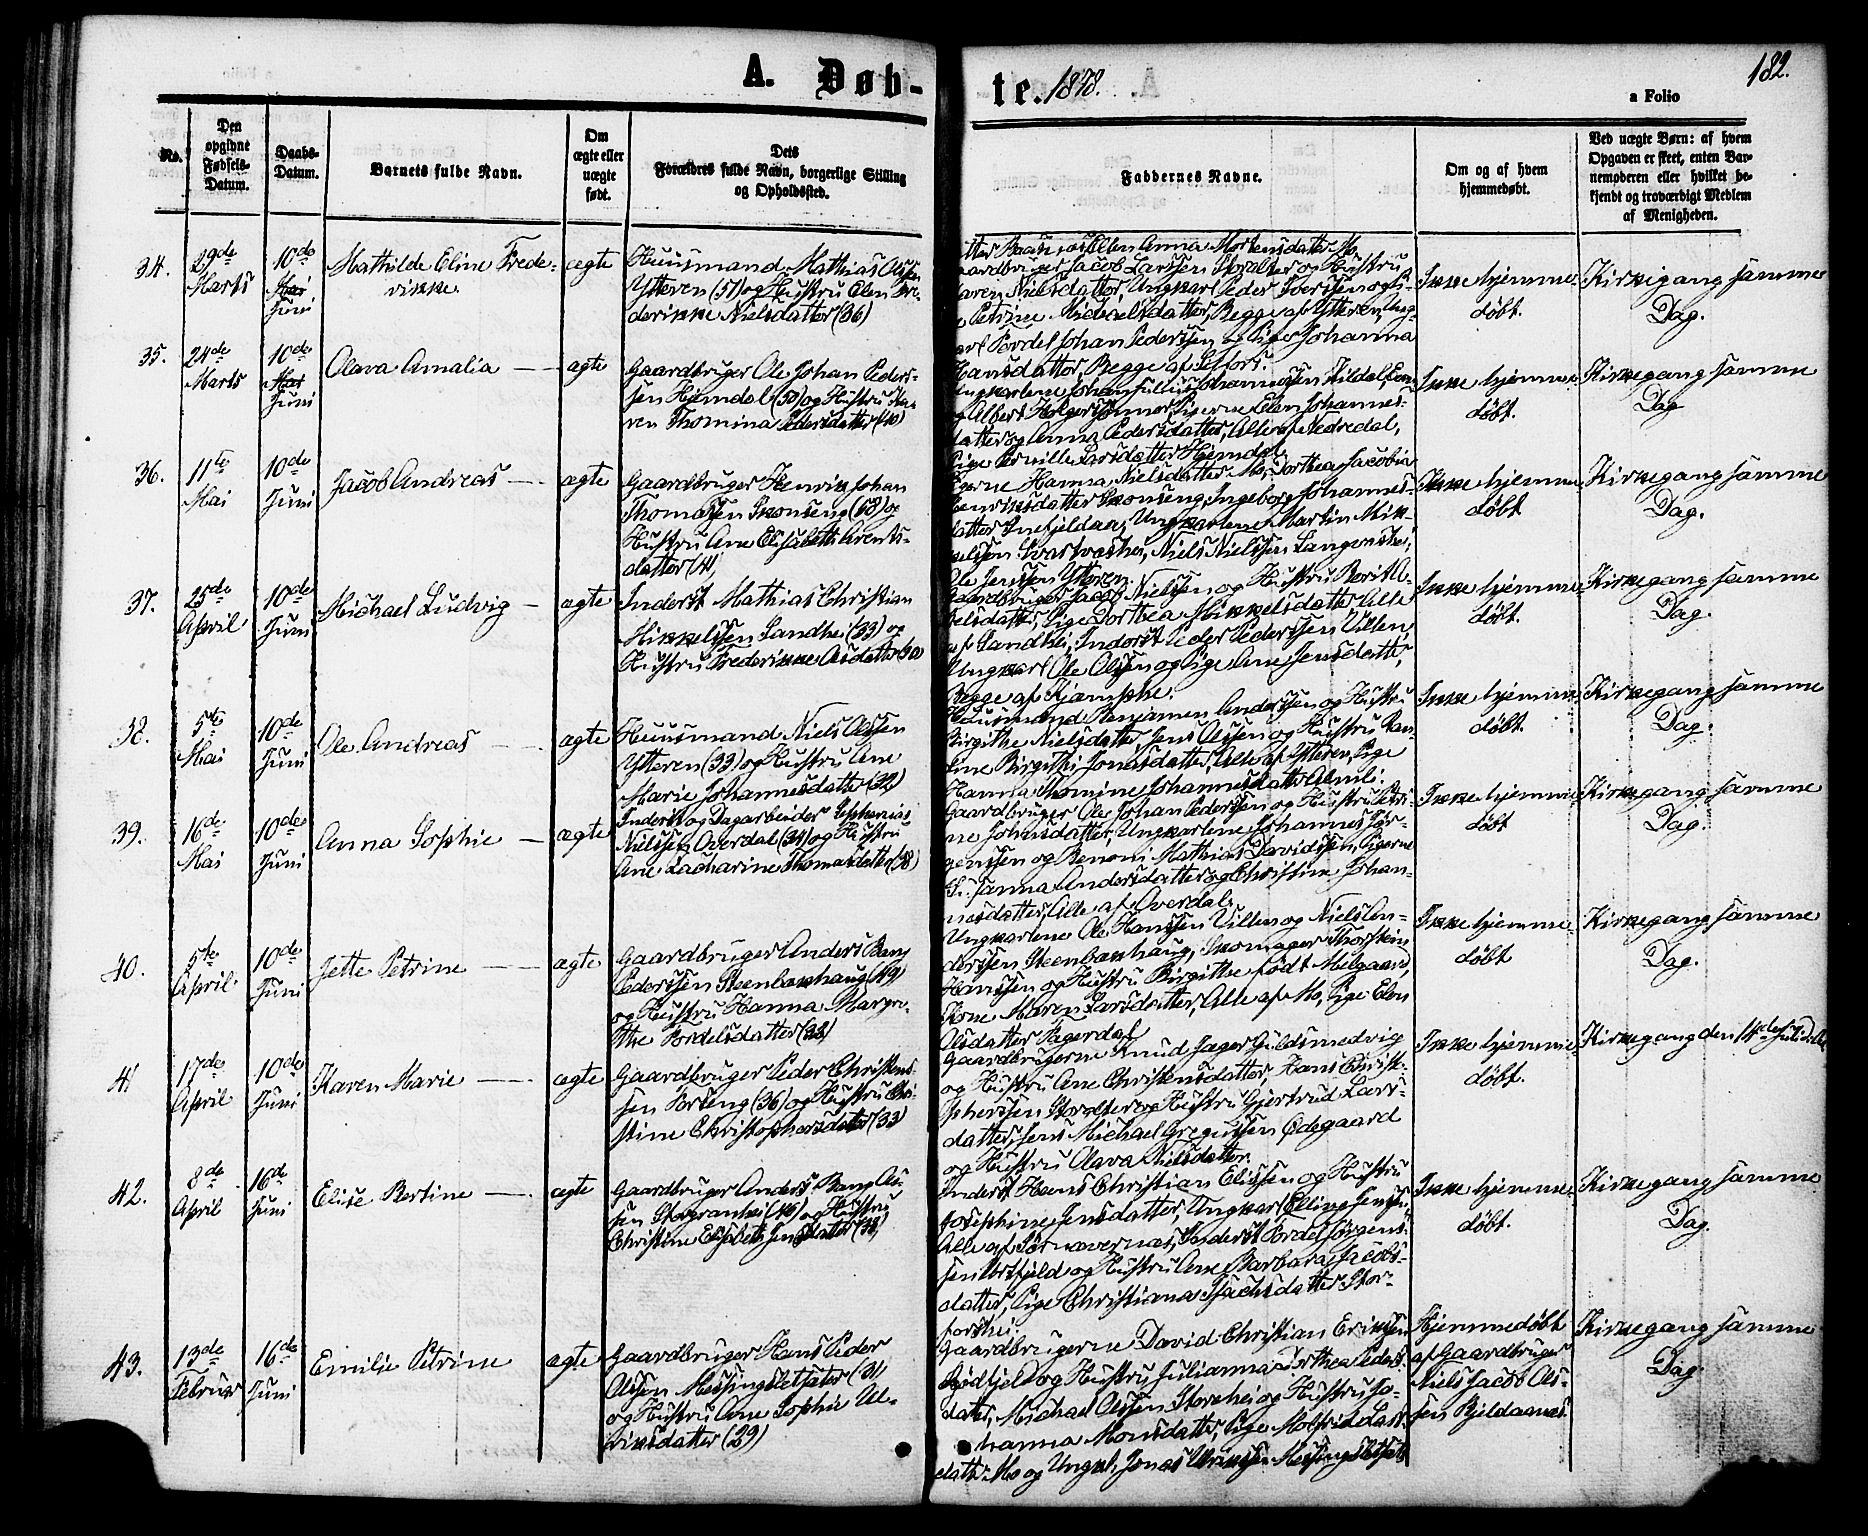 A. Døb-
te. 1878.
182.
a Folio
No.
Den opgivne Fødsels-Datum.
Daabs-Datum.
Barnets fulde Navn.
Om ægte eller uægte født.
Dets Forældres fulde Navn, borgerlige Stilling og Opholdssted.
Faddernes Navne.
Om og af hvem hjemmedøbt.
Ved uægte Børn: af hvem Opgaven er skeet, enten Barnemoderen eller hvilket bekjendt og troværdigt Medlem af Menigheden.
34.
29de Marts
10de Mai Juni
Mathilde Eline Frede-
rikke
ægte
Huusmand Mathias Olsen
Ytteren (51) og Hustru Elen Fre-
derikke Nielsdatter (36)
Ellen Anna Mortensdatter Mo
Jacob Larssen Storalter og Hustru
Maren Nielsdatter, Ungkarl Peder Iversen og Pi-
ge Petrine Michaelsdatter, Begge af Ytteren, Ung-
karl Pordel Johan Pederssen og Pige Johanna
Hansdatter, Begge af Selfors.
Ikke hjemme-
døbt.
Kirkegang samme
Dag.
35.
24de Marts
10de Mai Juni
Olava Amalia
ægte
Gaardbruger Ole Johan Peders-
sen Hjemdal (50) og Hustru Ka-
ren Thomina Pedersdatter (40)
Ungkarlene Johan Julius Johannessen Kildal,
Albert Holgersen Mo, Pigerne Elen Johannes-
datter og Anna Pedersdatter, Alle af Nedredal,
Pige Pernille Larsdatter Hjemdal.
Ikke hjemme-
døbt.
Kirkegang samme
Dag
36.
11te Mai
10de Juni
Jacob Andreas
ægte
Gaardbruger Henrik Johan
Thomassen Skonseng (48) og
Hustru Ane Elisabeth Arents-
datter (41)
Pigerne Hanna Nielsdatter Mo, Dorthea Jacobia
Henriksdatter Skonseng, Ingeborg Johannes-
datter Snefjeldaa, Ungkarlene Martin Mik-
kelssen Svartvashei, Niels Nielssen Langvashei,
Ole Jenssen Ytteren.
Ikke hjemme-
døbt
Kirkegang samme
Dag.
37.
25de April
10de Juni
Michael Ludvig
ægte
Inderst Mathias Christian
Mikkelssen Sandhei (33) og
Hustru Frederikke Aisdatter (30)
Gaardbruger Jacob Nielssen og Hustru Berit A-
nelsdatter, Pige Dorthea Mikkelsdatter Alle
af Sandhei, Inderst Peder Pederssen Villen,
Ungkarl Ole Olssen og Pige Ane Jensdatter,
Begge af Kjamphe.
Ikke hjemme-
døbt.
Kirkegang samme
Dag.
38.
5te Mai
10de Juni
Ole Andreas
ægte
Huusmand Niels Olssen
Ytteren (33) og Hustru Ane
Marie Johannesdatter (32)
Huusmand Benjamin Anderssen og Hustru
Birgithe Nielsdatter, Jens Olssen og Hustru Kar-
line Birgithe Jonasdatter, Alle af Ytteren, Pige
Hanna Thomine Johannesdatter Almli.
Ikke hjemme-
døbt.
Kirkegang samme
Dag.
39.
16de Mai
10de Juni
Anna Sophie
ægte
Inderst og Dagarbeider Sephanias
Nielssen Overdal (34) og Hustru
Ane Zacharine Thomasdatter (38)
Gaardbruger Ole Johan Pederssen og Hustru Petri-
ne Johnsdatter, Ungkarlene Johannes Jør-
genssen og Benoni Mathias Davidssen, Pigerne
Susanna Andersdatter og Christine Johan-
nesdatter, Alle af Overdal.
Ikke hjemme-
døbt
Kirkegang samme
Dag.
40.
5te April
10de Juni
Jette Petrine
ægte
Gaardbruger Anders Bang
Pederssen Steenbakhaug (49)
og Hustru Hanna Margre-
the Pordelsdatter (32)
Ungkarlene Ole Hanssen Villen og Niels An-
derssen Steenbakhaug, Skomager Thorstein
Hanssen og Hustru Birgithe født Melgaard,
Kone Maren Larsdatter, Alle af Mo, Pige Elen
Olsdatter Fagerdal.
Ikke hjemme-
døbt
Kirkegang samme
Dag.
41
17de April
10de Juni
Karen Marie
ægte
Gaardbruger Peder Christens-
sen Forseng (36) og Hustru Chri-
stine Christophersdatter (33)
Gaardbrugerne Knud Jager Guldsmedvig
og Hustru Ane Christensdatter, Hans Christo-
pherssen Storalter og Hustru Gjertrud Lars-
datter, Jens Michael Gregussen Ødegaard
og Hustru Olava Nielsdatter.
Ikke hjemme-
døbt.
Kirkegang den 14de Juli
42.
8de April
16de Juni
Elise Bertine
ægte
Gaardbruger Anders Bang Ol-
sen Storgranhei (46) og Hustru
Christine Elisabeth Jensdatter (38)
Inderst Hans Christian Elissen og Hustru
Josephine Jensdatter, Ungkarl Elling Jenssen,
Alle af Sørnævernæs, Inderst Pordel Jørgens-
sen Urtfjeld og Hustru Ane Barbara Jacobs-
datter, Pige Christiana Isachsdatter Stor-
forshei.
Ikke hjemme-
døbt.
Kirkegang samme
Dag.
43.
13de Februar
16de Juni
Emilie Petrine
ægte
Gaardbruger Hans Peder
Olssen Messingsletfater (31)
og Hustru Ane Sophie Ul-
riksdatter (29)
Gaardbrugerne David Christian Erikssen
Rødfjeld og Hustru Julianna Dorthea Peders-
datter, Michael Olssen Storehei og Hustru Jo-
hanna Monsdatter, Pige Molfrid Lars-
datter Mo og Ungk. Jonas Ulrikssen Messingsletfater
Hjemmedøbt
af Gaardbruger
Niels Jacob Ols-
sen Bjeldaanæs.
Kirkegang samme
Dag